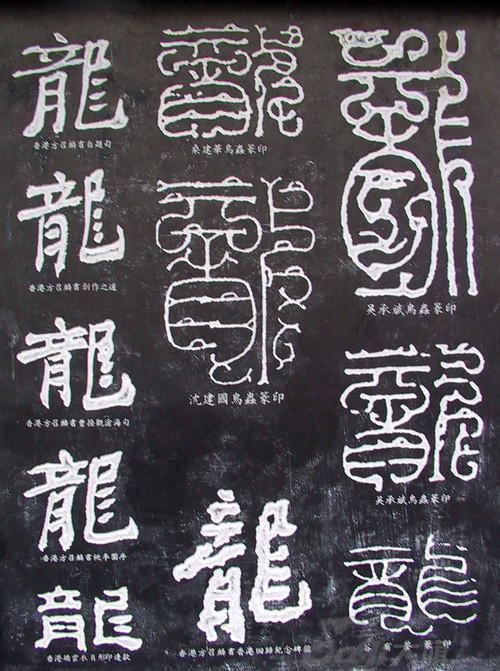 龍
香港方召麟書自題句
龍
香港方召麟書創作之道
龍
香港方召麟書曹操觀滄海句
龍
香港方召麟書
龍
香港 水肖形印邊款
龍
桑建華鳥蟲篆印
龍
沈建國鳥蟲篆印
龍
香港方召麟書香港回歸紀念碑銘
龍
吳承斌鳥蟲篆印
龍
吳承斌鳥蟲篆印
龍
谷有 篆印